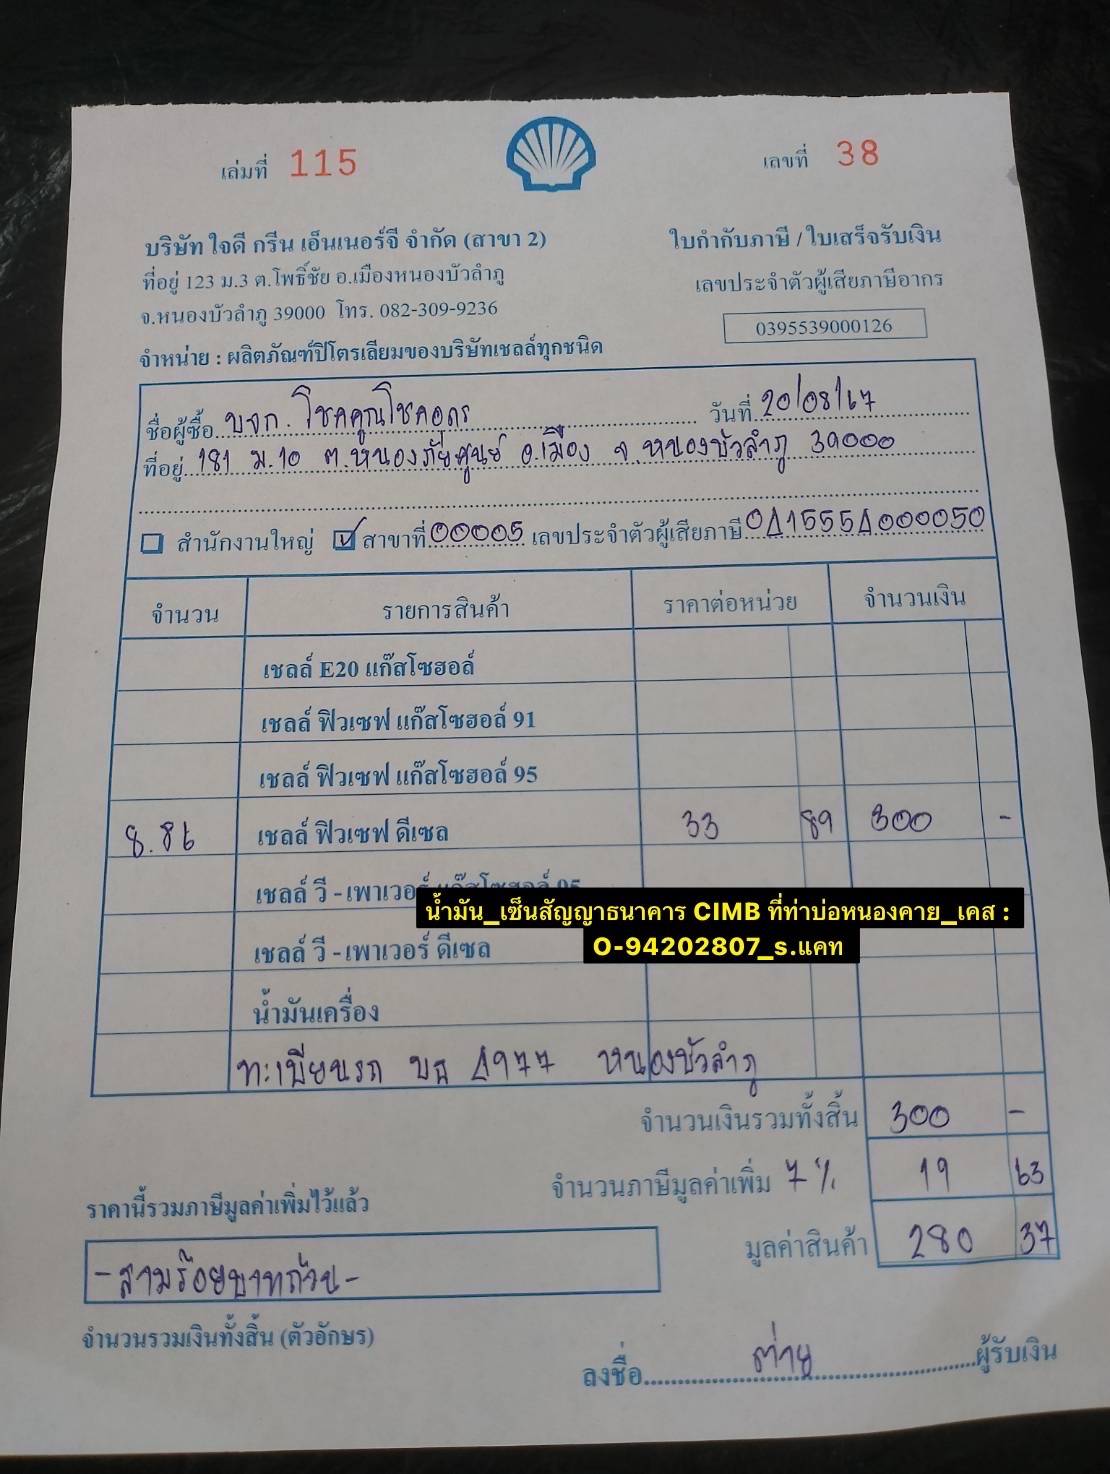 เล่มที่ 115
เลขที่ 38
บริษัท ใจดี กรีน เอ็นเนอร์จี จำกัด (สาขา 2)
ใบกำกับภาษี / ใบเสร็จรับเงิน
ที่อยู่ 123 ม.3 ต.โพธิ์ชัย อ.เมืองหนองบัวลำภู
เลขประจำตัวผู้เสียภาษีอากร
จ.หนองบัวลำภู 39000 โทร. 082-309-9236
0395539000126
จำหน่าย : ผลิตภัณฑ์ปิโตรเลียมของบริษัทเชลล์ทุกชนิด
ชื่อผู้ซื้อ บจก. โชคคูณโชคอุดร วันที่ 20/08/67
ที่อยู่ 181 ม.10 ต.หนองภัยศูนย์ อ.เมือง จ.หนองบัวลำภู 39000
สำนักงานใหญ่ สาขาที่ 00005 เลขประจำตัวผู้เสียภาษี 0415554000050
จำนวน รายการสินค้า ราคาต่อหน่วย จำนวนเงิน
เชลล์ E20 แก๊สโซฮอล์
เชลล์ ฟิวเซฟ แก๊สโซฮอล์ 91
เชลล์ ฟิวเซฟ แก๊สโซฮอล์ 95
8.86 เชลล์ ฟิวเซฟ ดีเซล 33 89 300 -
เชลล์ วี - เพาเวอร์ แก๊สโซฮอล์ 95
น้ำมัน_เซ็นสัญญาธนาคาร CIMB ที่ท่าบ่อหนองคาย_เคส :
O-94202807_s.แคท
เชลล์ วี - เพาเวอร์ ดีเซล
น้ำมันเครื่อง
ทะเบียนรถ 4977 หนองบัวลำภู
จำนวนเงินรวมทั้งสิ้น 300 -
จำนวนภาษีมูลค่าเพิ่ม 7% 19 63
ราคานี้รวมภาษีมูลค่าเพิ่มไว้แล้ว
มูลค่าสินค้า 280 37
-สามร้อยบาทถ้วน-
จำนวนรวมเงินทั้งสิ้น (ตัวอักษร)
ลงชื่อ ต่าย ผู้รับเงิน